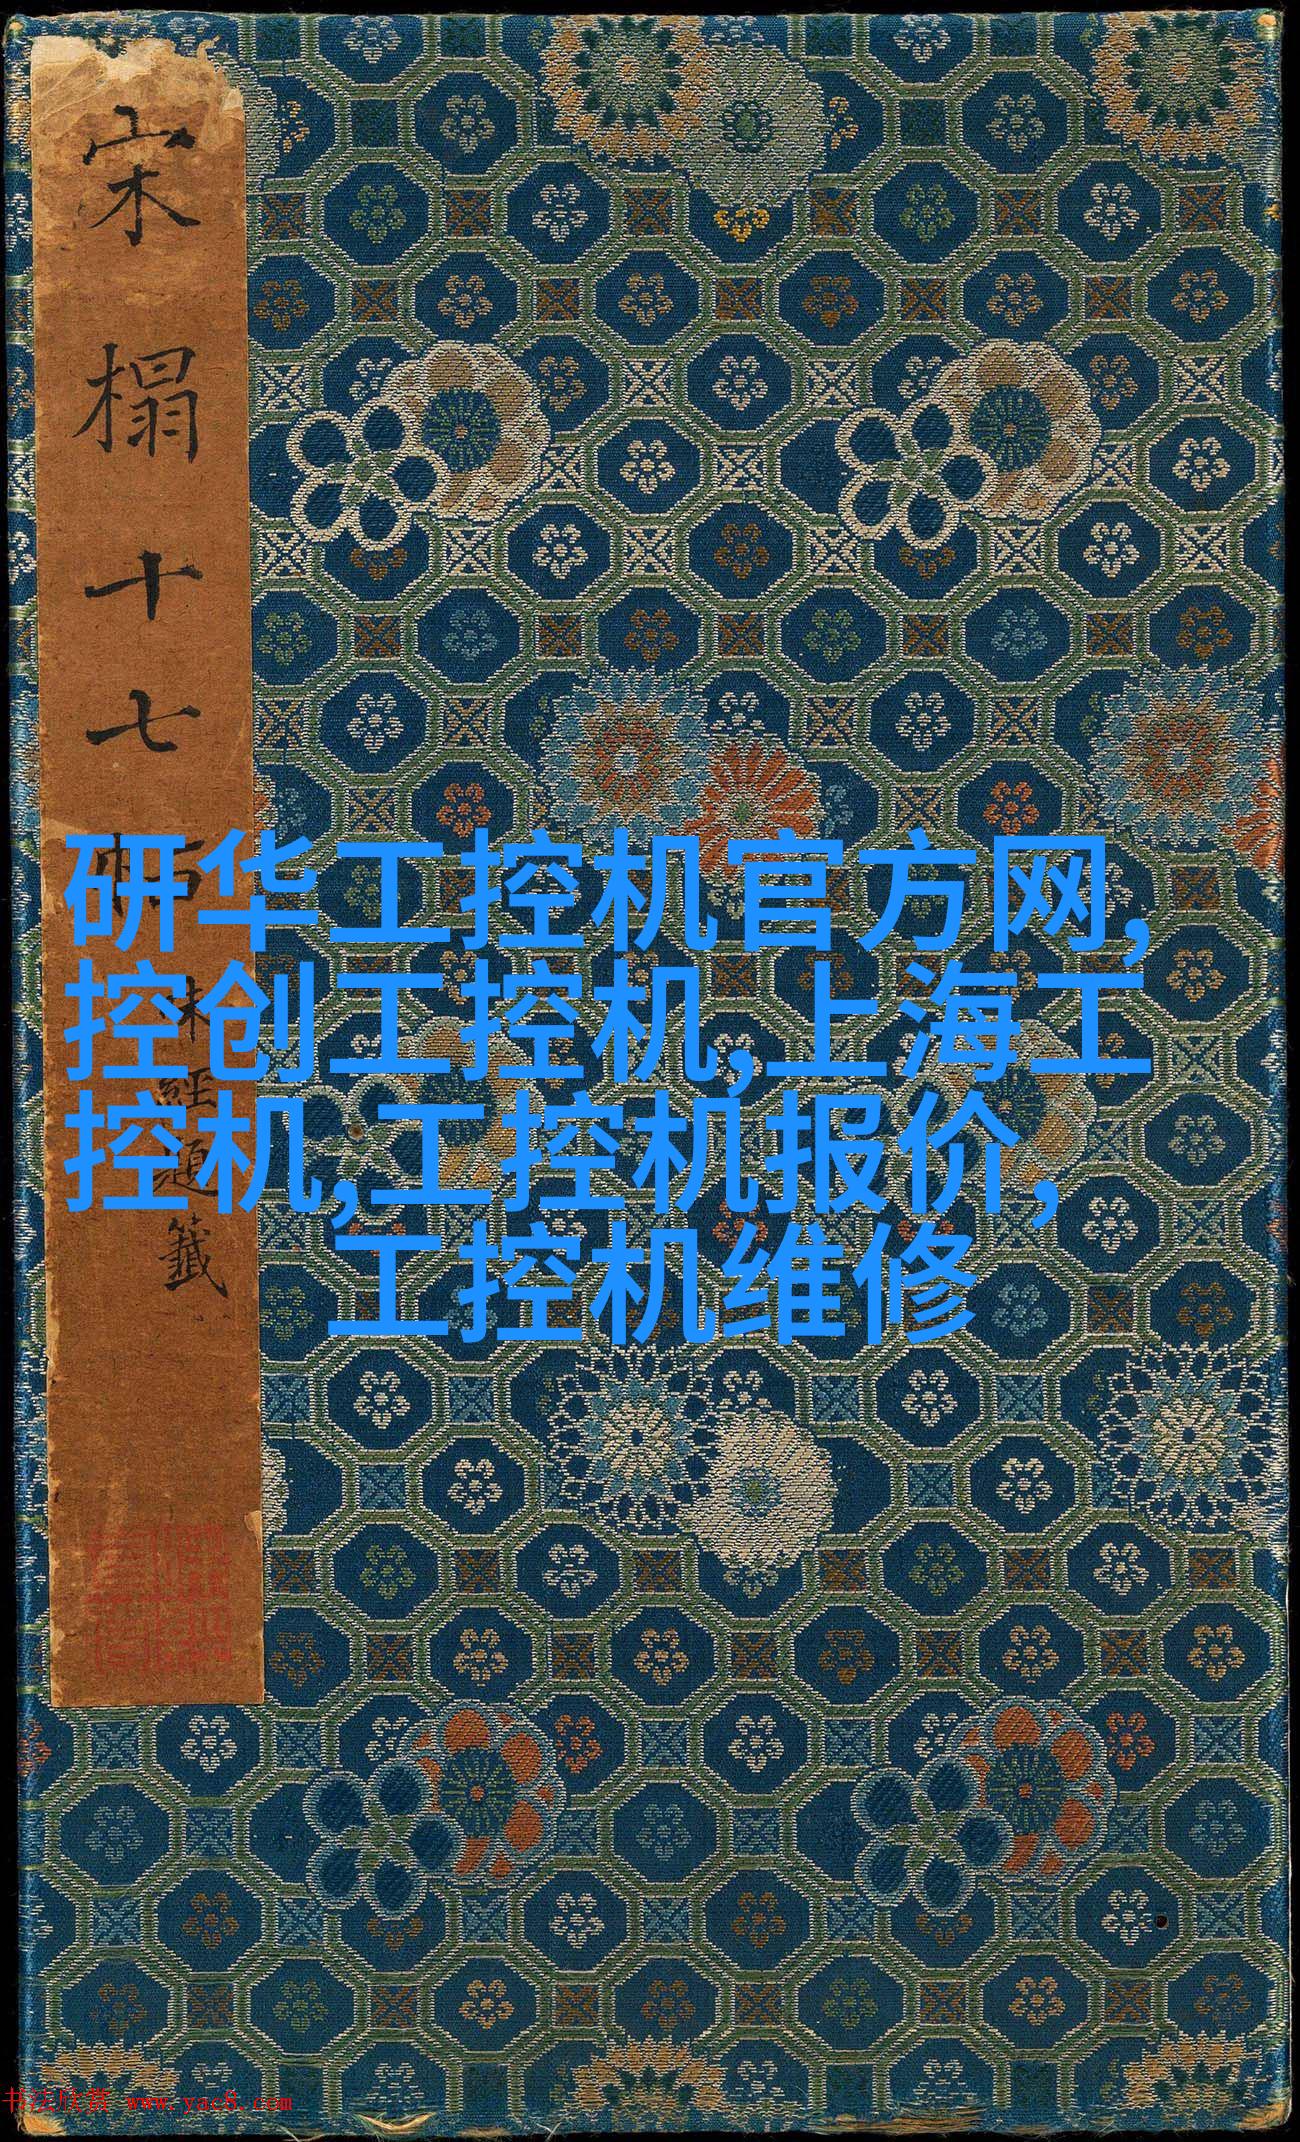 宋榻十七帖
經題籤
研华工控机官方网,
控创工控机,上海工
控机,工控机报价,
工控机维修
书法欣赏 www.yac8.com